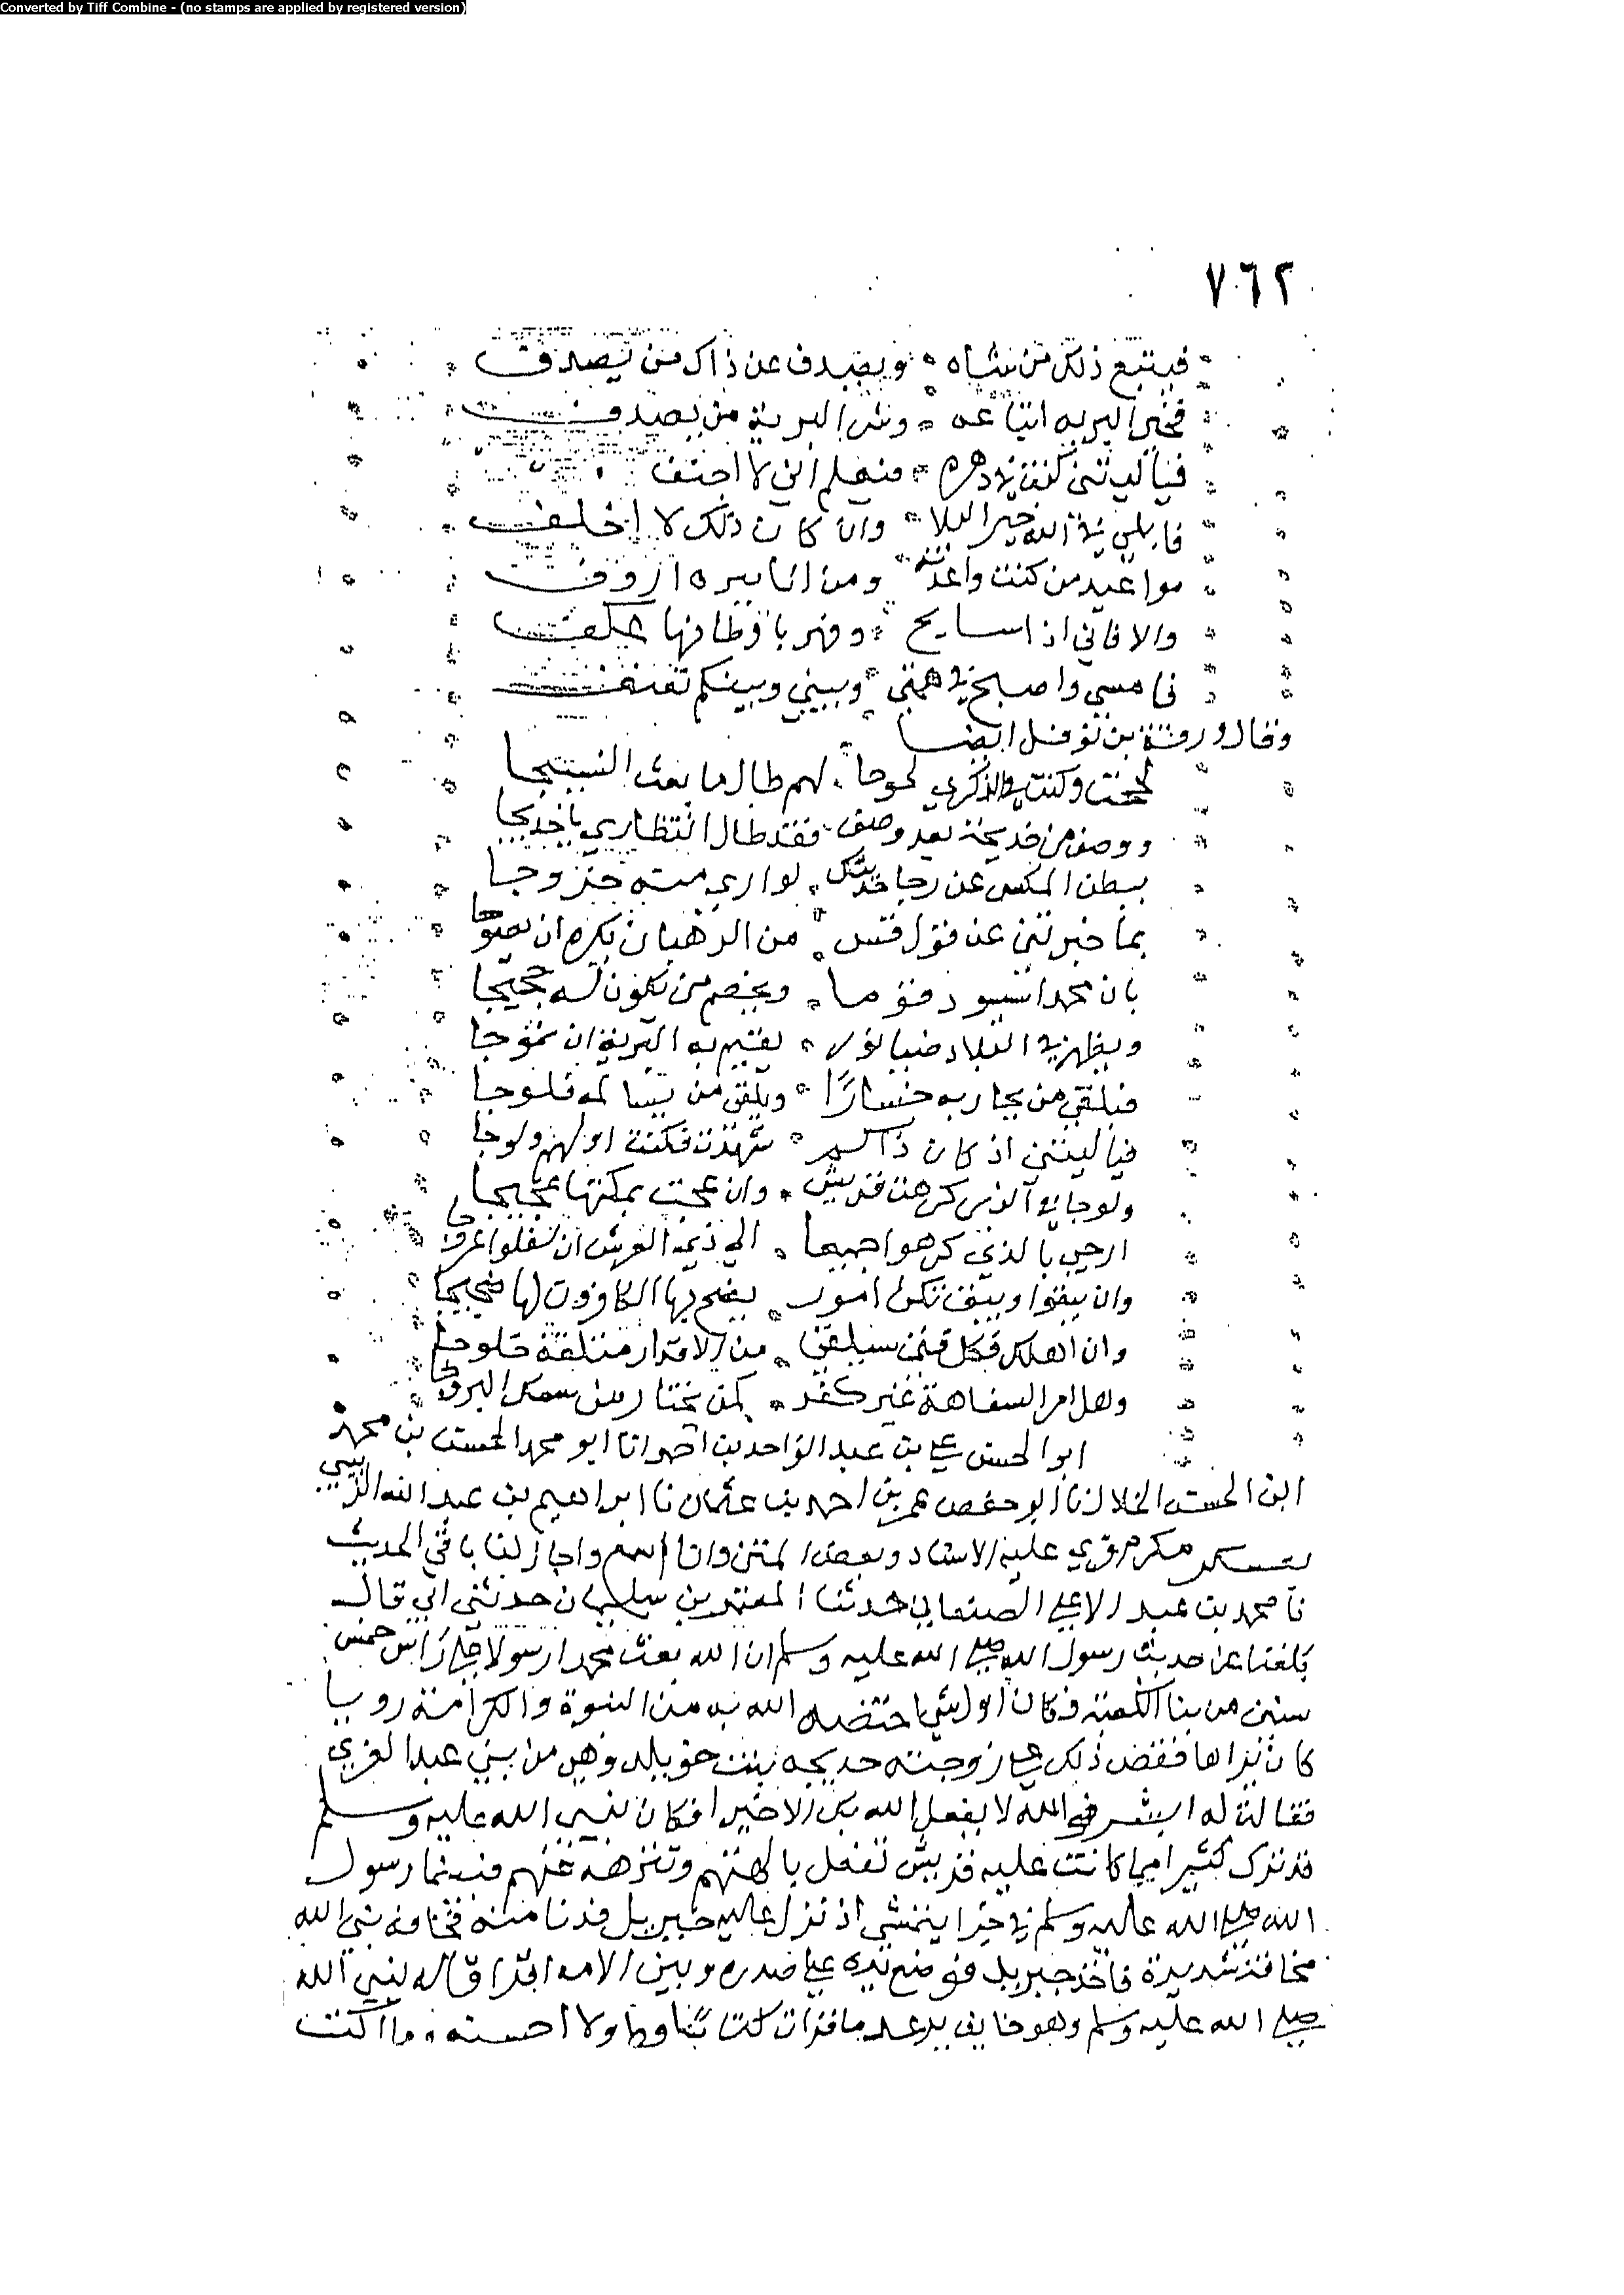 Converted by Tiff Combine - (no stamps are applied by registered version)
٧٦٢
فيتبع ذلك من شاه ويصدف عن ذاك من يصدف
فخير البريه اتباعه وشر البرية من يصدف
فيا ليتني كنت في دهره فيعلم اني لا اجنف
فابلى في الله خير البلا وان كان ذلك لا اخلف
مواعيد من كنت واعدته ومن انا بيره اروف
والا فاني اذا سايح وفهر باوطانها عكف
فامسي واصبح في همتي وبيني وبينكم تفنف
وقال ورقة بن نوفل ايضا
لججت وكنت في الذكرى لجوجا لهم طال ما بعث النشيجا
ووصف من خديجة بعد وصف فقد طال انتظاري يا خديجا
ببطن المكس عن رجا حديثك لو ارى منه خروجا
بما خبرتني عن قول قس من الرهبان يكره ان يعوجا
بان محمدا سيسود قوما ويخصم من يكون له حجيجا
ويظهر في البلاد ضيا نور يقيم به البرية ان تموجا
فيلقى من يحاربه خسارًا ويلقى من يسالمه فلوجا
فيا ليتني اذ كان ذاكم شهدت فكنت اولهم ولوجا
ولوجا في الذي كرهت قريش وان عجت بمكتها عجيجا
ارجي بالذي كرهوا جميعا الى ذي العرش ان سفلوا عروجا
وان يبقوا وييق تكن امور يضج بها الكافرون لها ضجيجا
وان اهلك فكل فتى سيلقى من الاقدار متلفة خلوجا
وهل امر السفاهة غير كفر كمن يختار من سمك البروجا
ابو الحسن علي بن عبد الواحد بن احمد انا ابو محمد الحسن بن محمد
ابن الحسن الخلال نا ابو حفص عمر بن احمد بن عثمان نا ابراهيم بن عبد الله الزينبي
بعسكر مكرم قري عليه الاسناد وبعض المتن وانا اسمع واجاز لنا باقي الحديث
نا محمد بن عبد الاعلى الصنعاني حدثنا المعتمر بن سليمان حدثني ابي قال
بلغنا عن حديث رسول الله صلى الله عليه وسلم ان الله بعث محمدا رسولا على راس خمس
سنين من بنا الكعبة فكان اول شي اختصه الله به من النبوة والكرامة رويا
كان يراها فقص ذلك على زوجته خديجه بنت خويلد وهي من بني عبد العزي
فقالت له ابشر فوالله لا يفعل الله بك الا خيرا فكان لنبي الله عليه وسلم
قد ترك كثيرا مما كانت عليه قريش تفعل بالهتهم وتنزهه عنهم فبينما رسول
الله صلى الله عليه وسلم في حرا يتمشى اذ نزل عليه جبريل فدنا منه فخافه نبي الله
مخافة شديدة فاخذ جبريل فوضع يده على صدره وبين الامه اقرا قال له نبي الله
صلى الله عليه وسلم وهو خايف يرعد ما قرات كتابا قط ولا احسنه وما اكتب